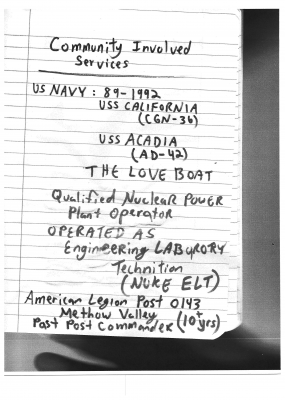 Community Involved
Services
US NAVY: 89-1992
USS CALIFORNIA
(CGN-36)
USS ACADIA
(AD-42)
THE LOVE BOAT
Qualified Nuclear POWER
Plant Operator
OPERATED AS
Engineering LABURORY
Technition
(NUKE ELT)
American Legion Post 0143
Methow Valley
Past Post Commander (10+yrs)